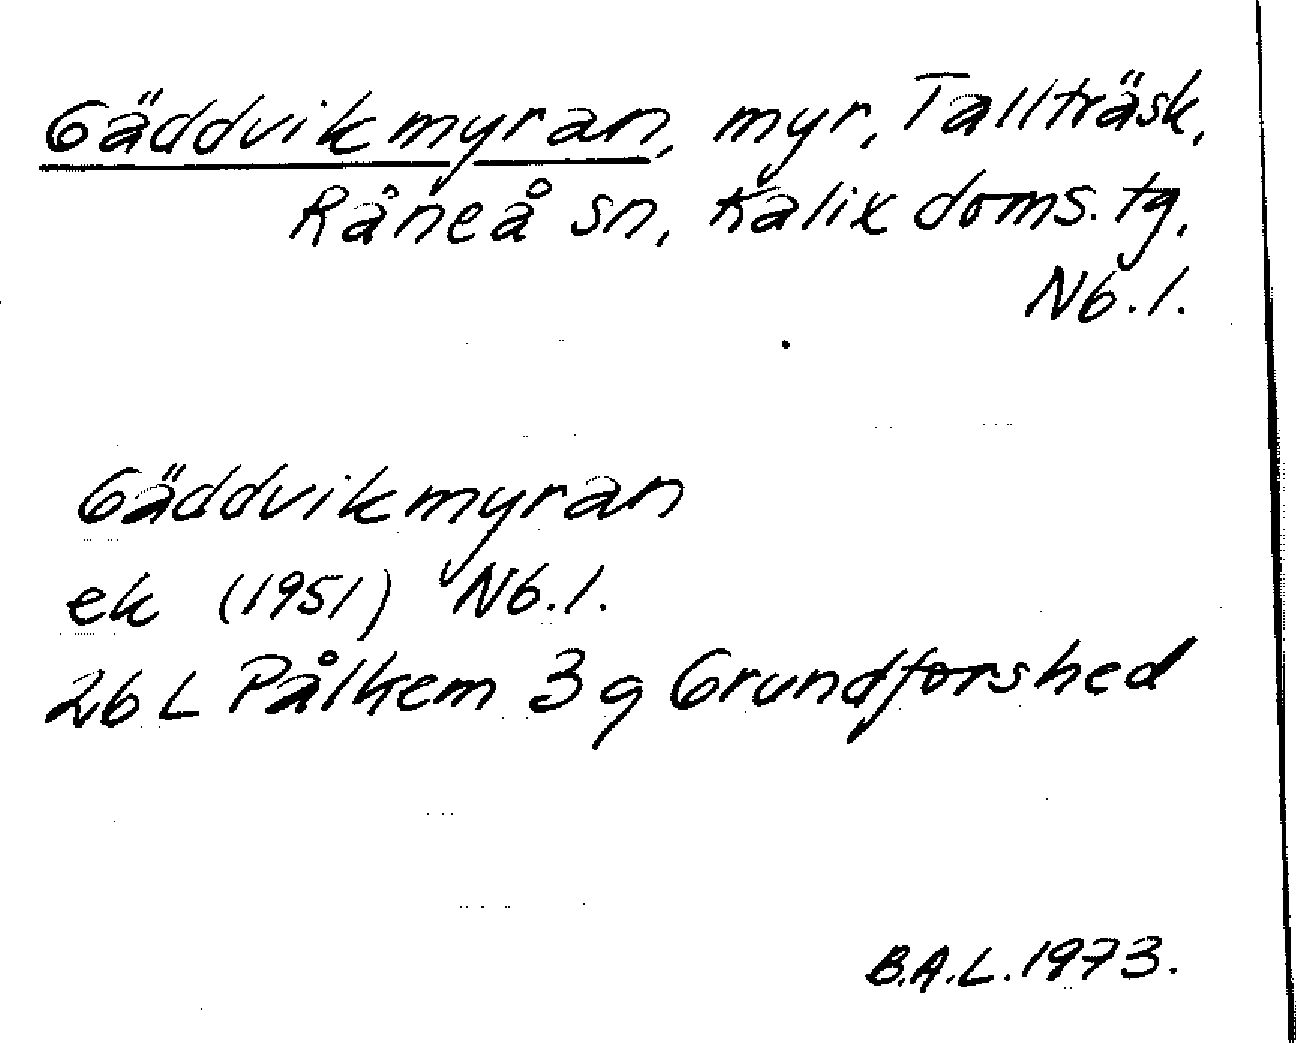 Gäddvikmyran, myr, Tallträsk,
Råneå sn, Kalix doms. tg,
Nb. l.
Gäddvikmyran
ek (1951) Nb. l.
26 L Pålkem 3 g Grundforshed
B.A.L. 1973.